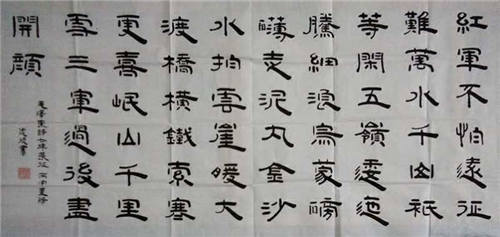 紅軍不怕遠征
難萬水千山祇
等閑五嶺逶迤
騰細浪烏蒙磅
礴走泥丸金沙
水拍雲崖暖大
渡橋橫鐵索寒
更喜岷山千里
雪三軍過後盡
開顏
毛澤東詩七律長征
書